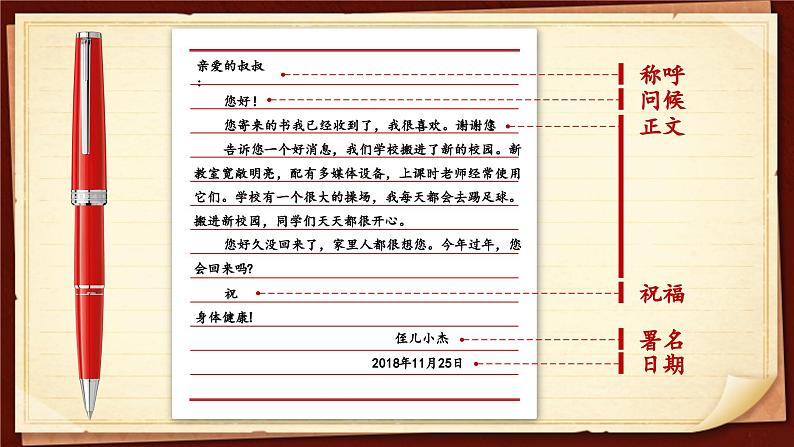 亲爱的叔叔
:
您好!
您寄来的书我已经收到了，我很喜欢。谢谢您
告诉您一个好消息，我们学校搬进了新的校园。新
教室宽敞明亮，配有多媒体设备，上课时老师经常使用
它们。学校有一个很大的操场，我每天都会去踢足球。
搬进新校园，同学们天天都很开心。
您好久没回来了，家里人都很想您。今年过年，您
会回来吗?
祝
身体健康!
侄儿小杰
2018年11月25日
称呼
问候
正文
祝福
署名
日期